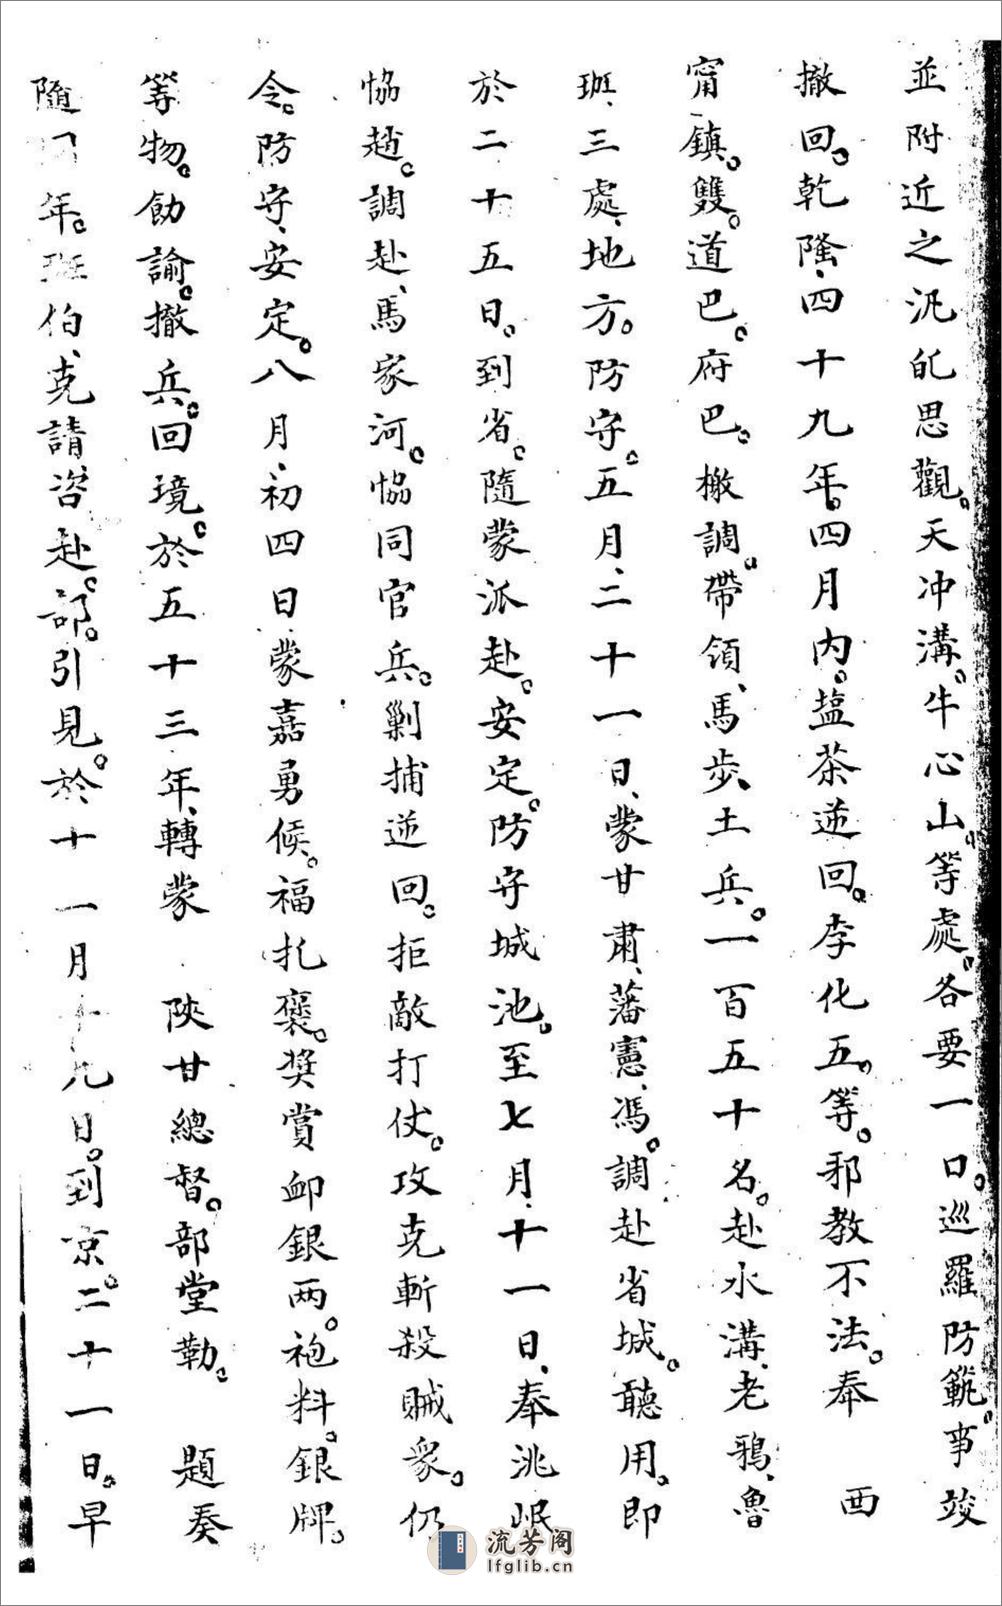 並附近之汛皀思觀。天冲溝。牛心山。等處。各要一口。巡羅防範。事竣
撤回。乾隆、四十九年。四月內。塩茶逆回。李化五。等。邪教不法。奉　西
甯鎮。雙。道巴。府巴。檄調。帶領、馬步、土兵。一百五十名。赴水溝、老鴉、魯
班、三處、地方。防守。五月、二十一日、蒙甘肅、藩憲、馮。調赴省城。聽用。即
於二十五日。到省。隨蒙派赴。安定。防守城池。至七月、十一日、奉洮岷
恊趙。調赴、馬家河。恊同官兵。剿捕逆回。拒敵打仗。攻克斬殺賊衆。仍
令。防守、安定。八月、初四日、蒙嘉勇候。福扎褒。奬賞卹銀两。袍料。銀牌。
等物。飭諭。撤兵。回境。於五十三年、轉蒙　陝甘總督。部堂勒。　題奏
隨年。班伯、克請咨赴。部。引見。於十一月十九日。到京。二十一日。早
流芳阁
lfglib.cn